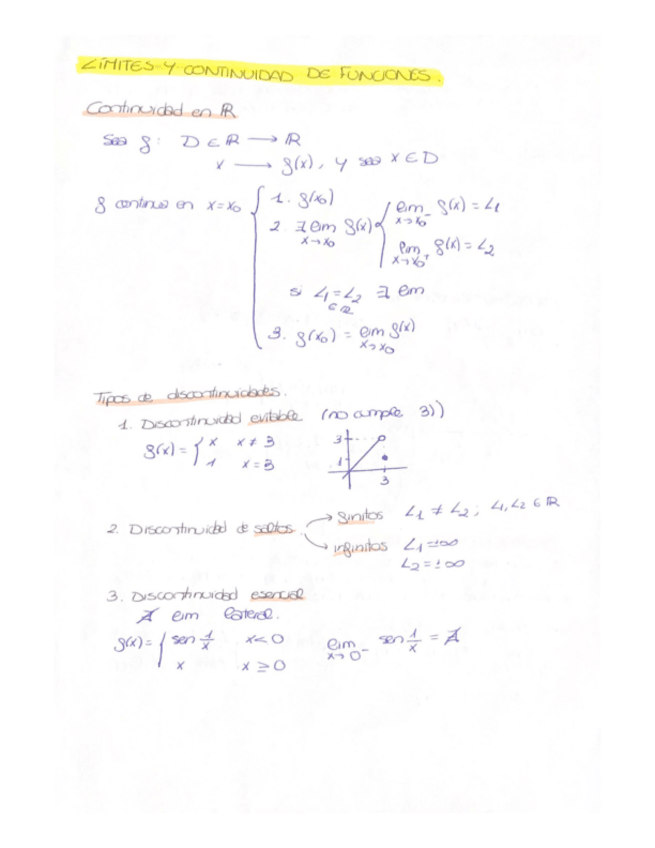 LÍMITES Y CONTINUIDAD DE FUNCIONES.
Continuidad en ℝ
Sea f: D ∈ ℝ → ℝ
x → f(x), y sea x ∈ D
f continua en x=x₀ { 1. f(x₀)
2. ∃ lim x→x₀ f(x) { lim x→x₀⁻ f(x) = L₁
lim x→x₀⁺ f(x) = L₂
si L₁=L₂ ∃ lim
∈ ℝ
3. f(x₀) = lim x→x₀ f(x)
Tipos de discontinuidades.
1. Discontinuidad evitable (no cumple 3))
f(x) = { x x ≠ 3
1 x = 3
3
1
3
2. Discontinuidad de saltos → finitos L₁ ≠ L₂; L₁, L₂ ∈ ℝ
→ infinitos L₁ = ±∞
L₂ = ±∞
3. Discontinuidad esencial
∄ lim lateral.
f(x) = { sen 1/x x < 0 lim x→0⁻ sen 1/x = ∄
x x ≥ 0